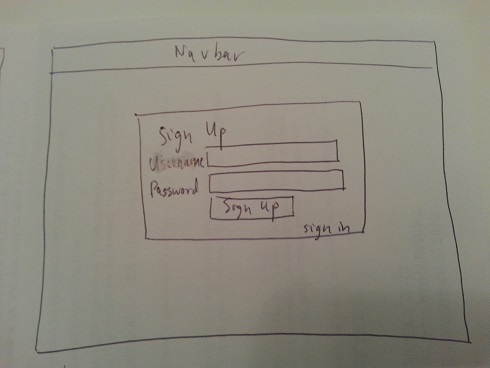 Navbar
Sign Up
Username
Password
Sign Up
sign in